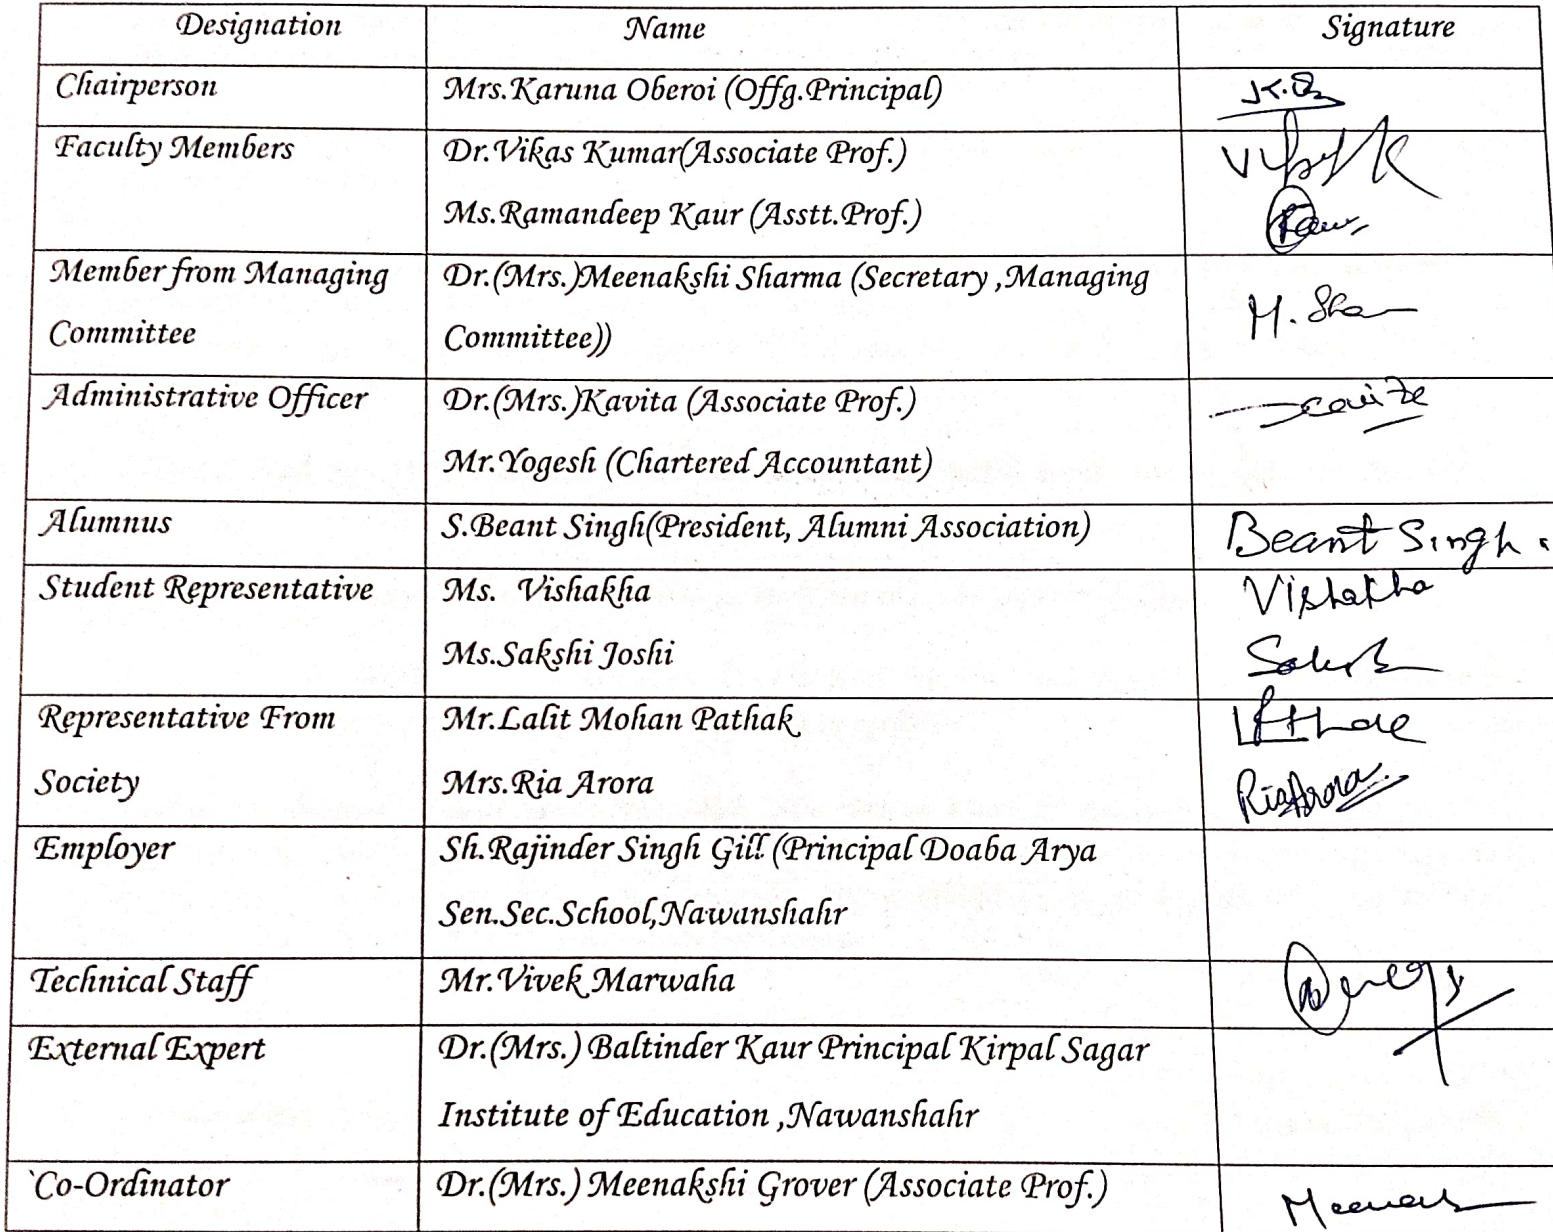 Designation Name Signature
Chairperson Mrs.Karuna Oberoi (Offg.Principal)
Faculty Members Dr.Vikas Kumar(Associate Prof.)
Ms.Ramandeep Kaur (Asstt.Prof.)
Member from Managing Dr.(Mrs.)Meenakshi Sharma (Secretary ,Managing
Committee Committee)) M. Sha
Administrative Officer Dr.(Mrs.)Kavita (Associate Prof.)
Mr.Yogesh (Chartered Accountant)
Alumnus S.Beant Singh(President, Alumni Association) Beant Singh.
Student Representative Ms. Vishakha Vishakha
Ms.Sakshi Joshi
Representative From Mr.Lalit Mohan Pathak
Society Mrs.Ria Arora Ria Arora
Employer Sh.Rajinder Singh Gill (Principal Doaba Arya
Sen.Sec.School,Nawanshahr
Technical Staff Mr.Vivek Marwaha
External Expert Dr.(Mrs.) Baltinder Kaur Principal Kirpal Sagar
Institute of Education ,Nawanshahr
`Co-Ordinator Dr.(Mrs.) Meenakshi Grover (Associate Prof.)